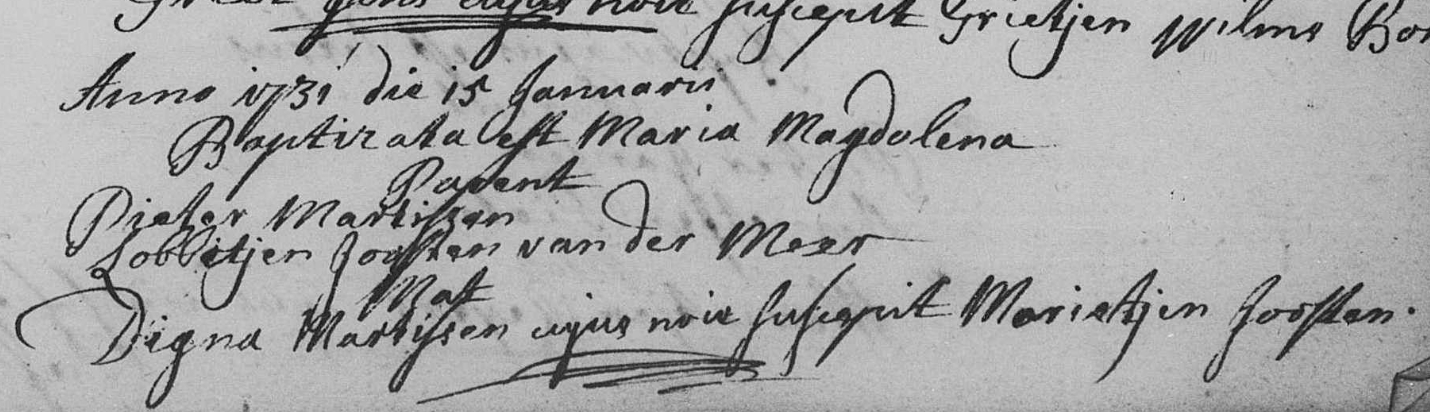 cujus noie suscepit Grietjen Wilms
Anno 1731 die 15 Januarii
Baptizata est Maria Magdolena
Parent
Pieter Martissen
Lobbitjen Joosten van der Meer
Digna Martissen cujus noie suscepit Marietjen Joosten.